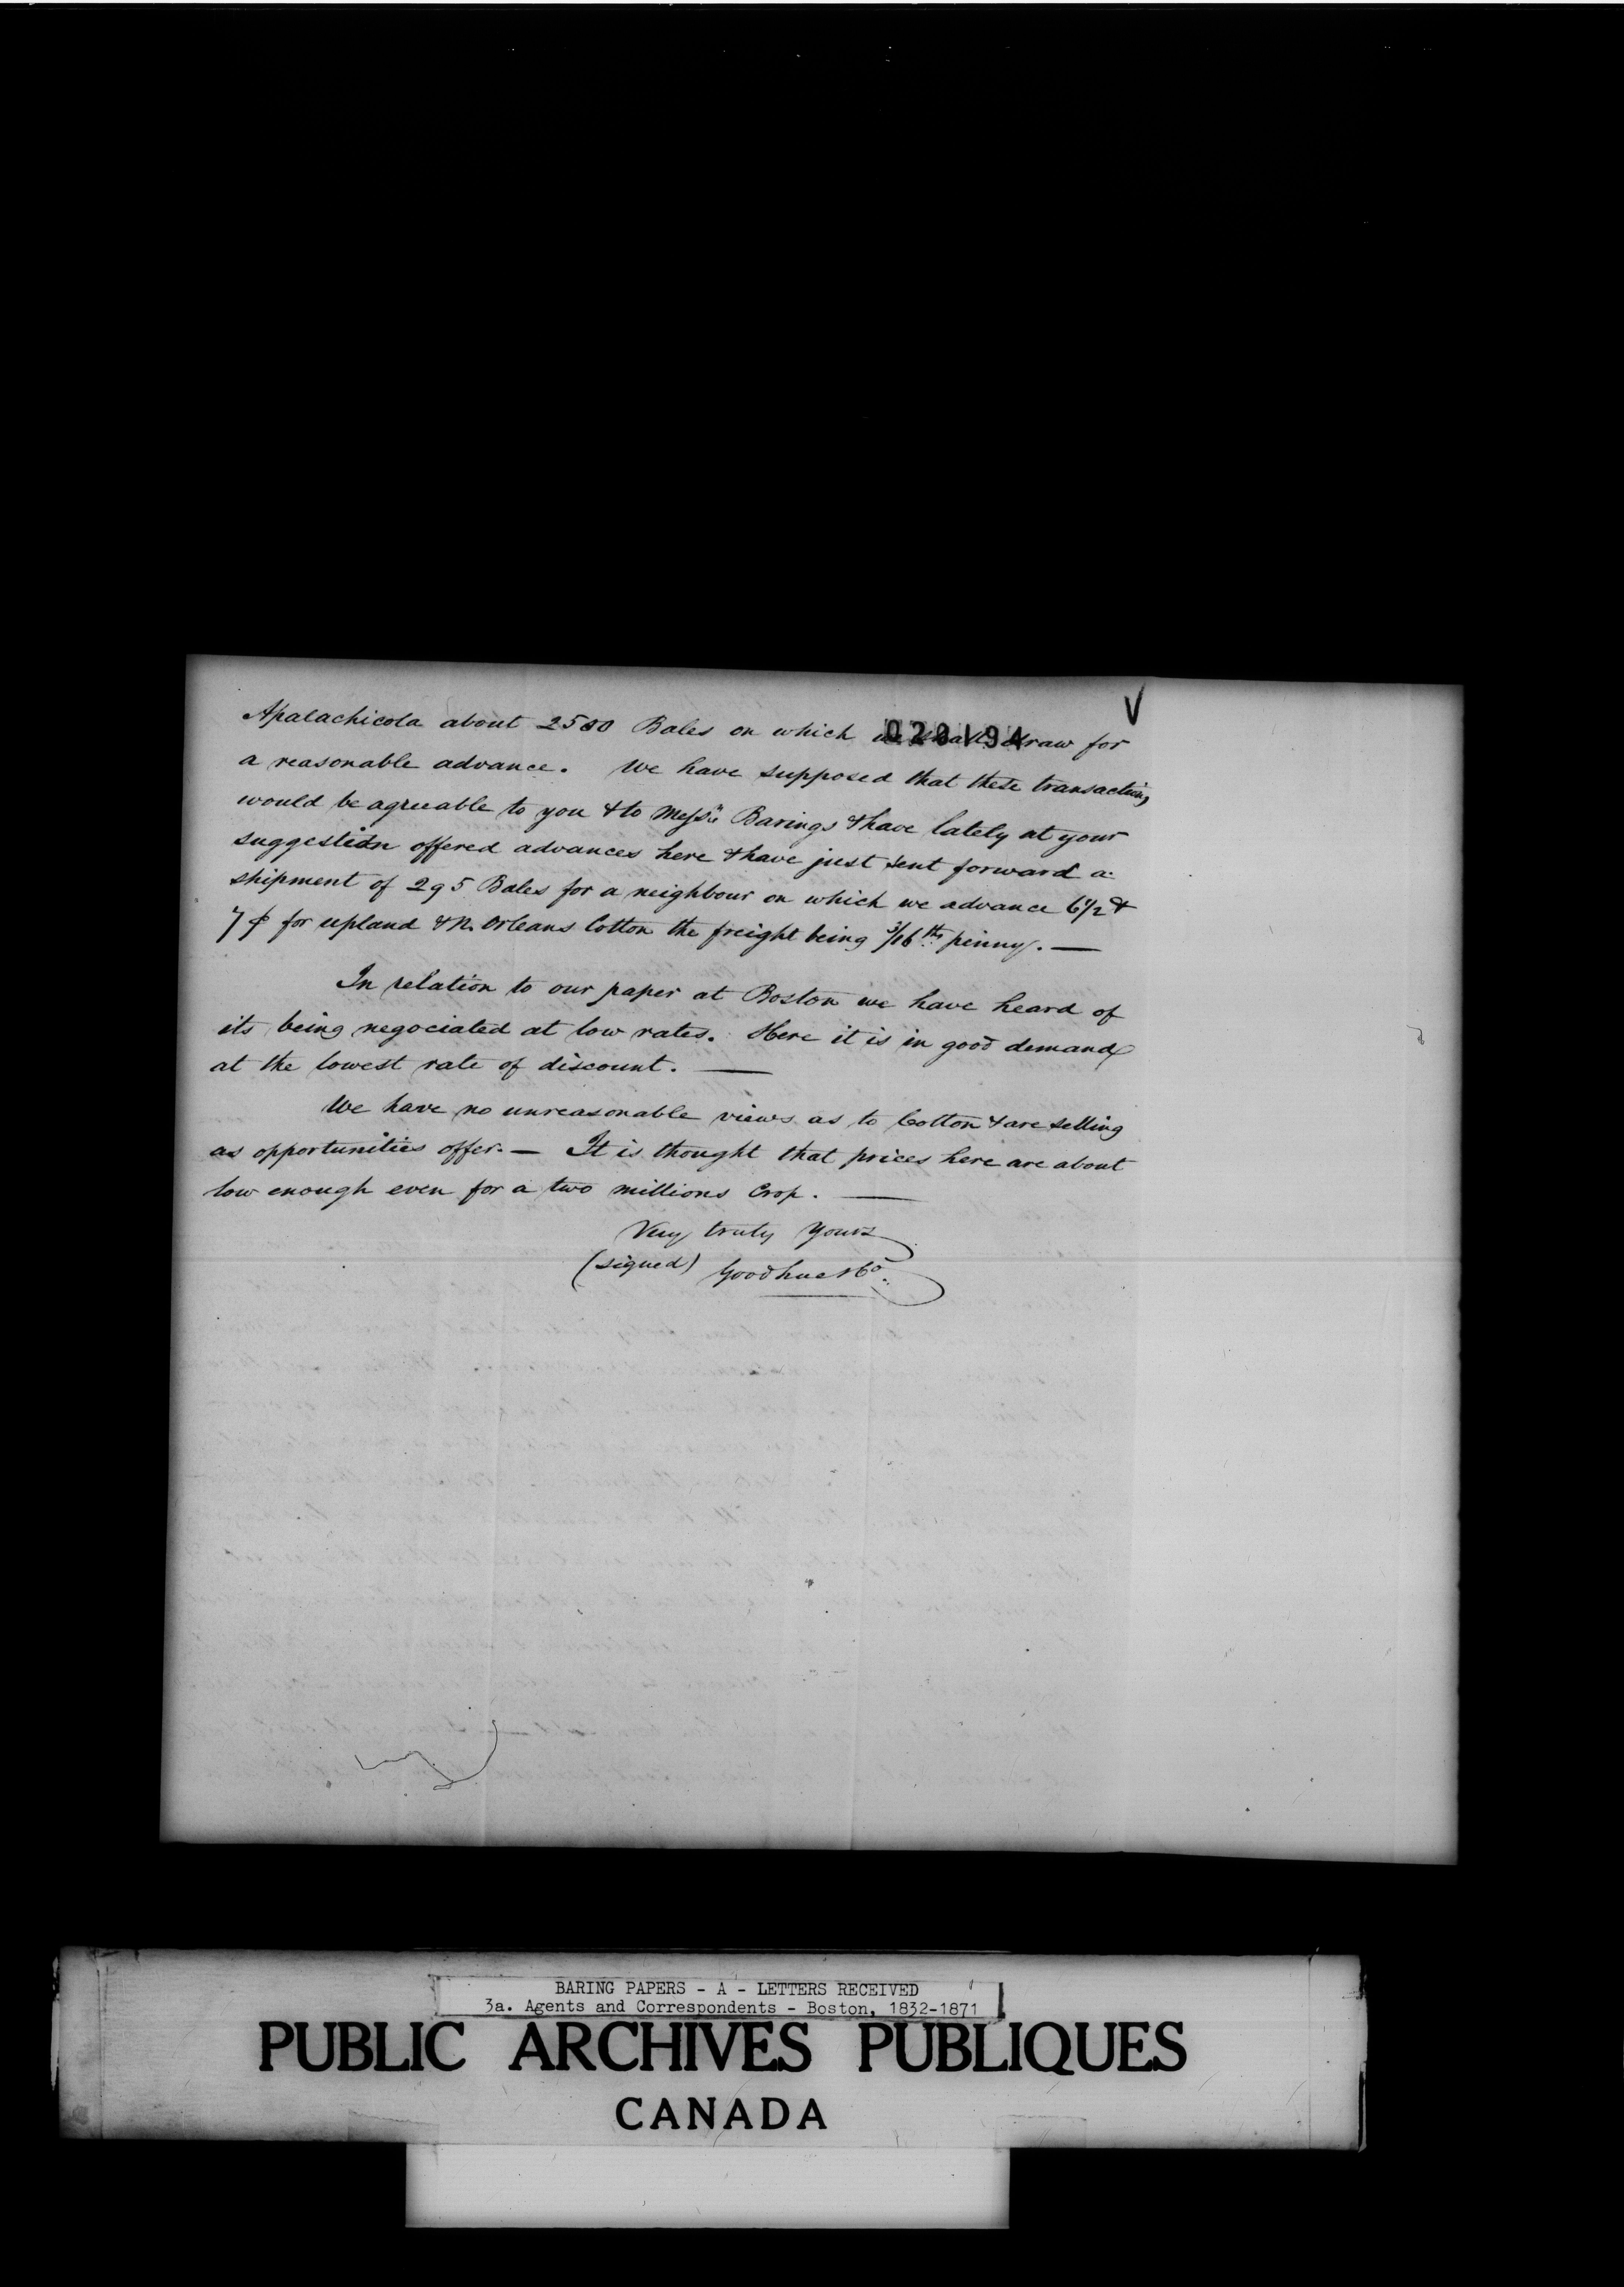 V
020194
Apalachicola about 2500 Bales on which we shall draw for
a reasonable advance. We have supposed that these transactions
would be agreeable to you & to Messrs Barings & have lately at your
suggestion offered advances here & have just sent forward a
shipment of 295 Bales for a neighbour on which we advance 6 1/2 &
7 ¢ for upland & N. Orleans Cotton the freight being 3/16ths penny. —
In relation to our paper at Boston we have heard of
its being negociated at low rates. Here it is in good demand
at the lowest rate of discount. —
We have no unreasonable views as to Cotton & are selling
as opportunities offer. — It is thought that prices here are about
low enough even for a two millions Crop. —
Very truly Yours
(signed) Goodhue & Co.
BARING PAPERS - A - LETTERS RECEIVED
3a. Agents and Correspondents - Boston, 1832-1871
PUBLIC ARCHIVES PUBLIQUES
CANADA